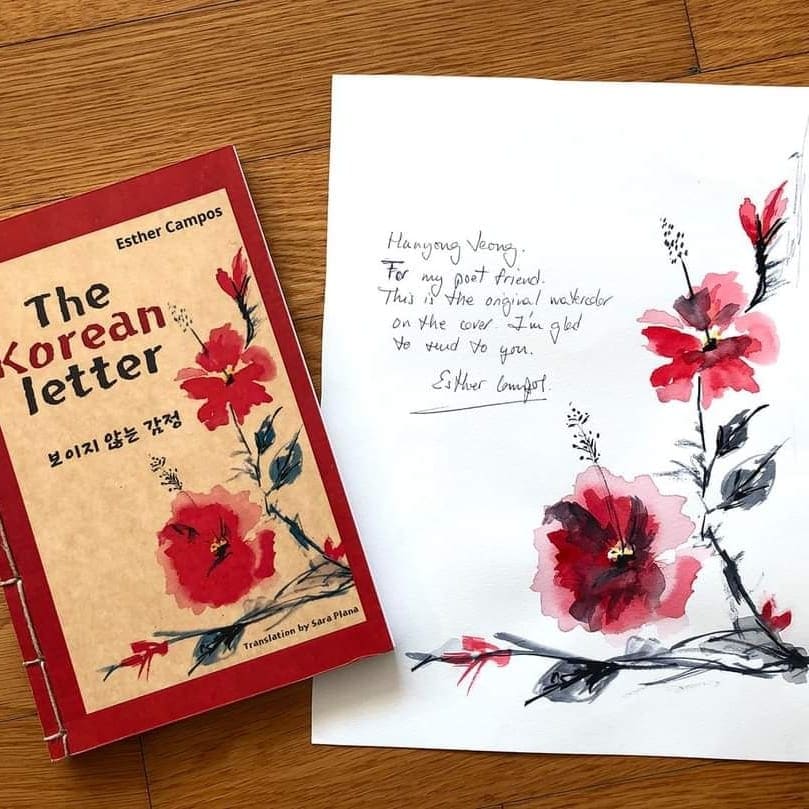 Esther Campos
The
Korean
letter
보이지 않는 감정
Translation by Sara Plana
Hanyong Jeong.
For my poet friend.
This is the original watercolor
on the cover. I'm glad
to send to you.
Esther Campos.